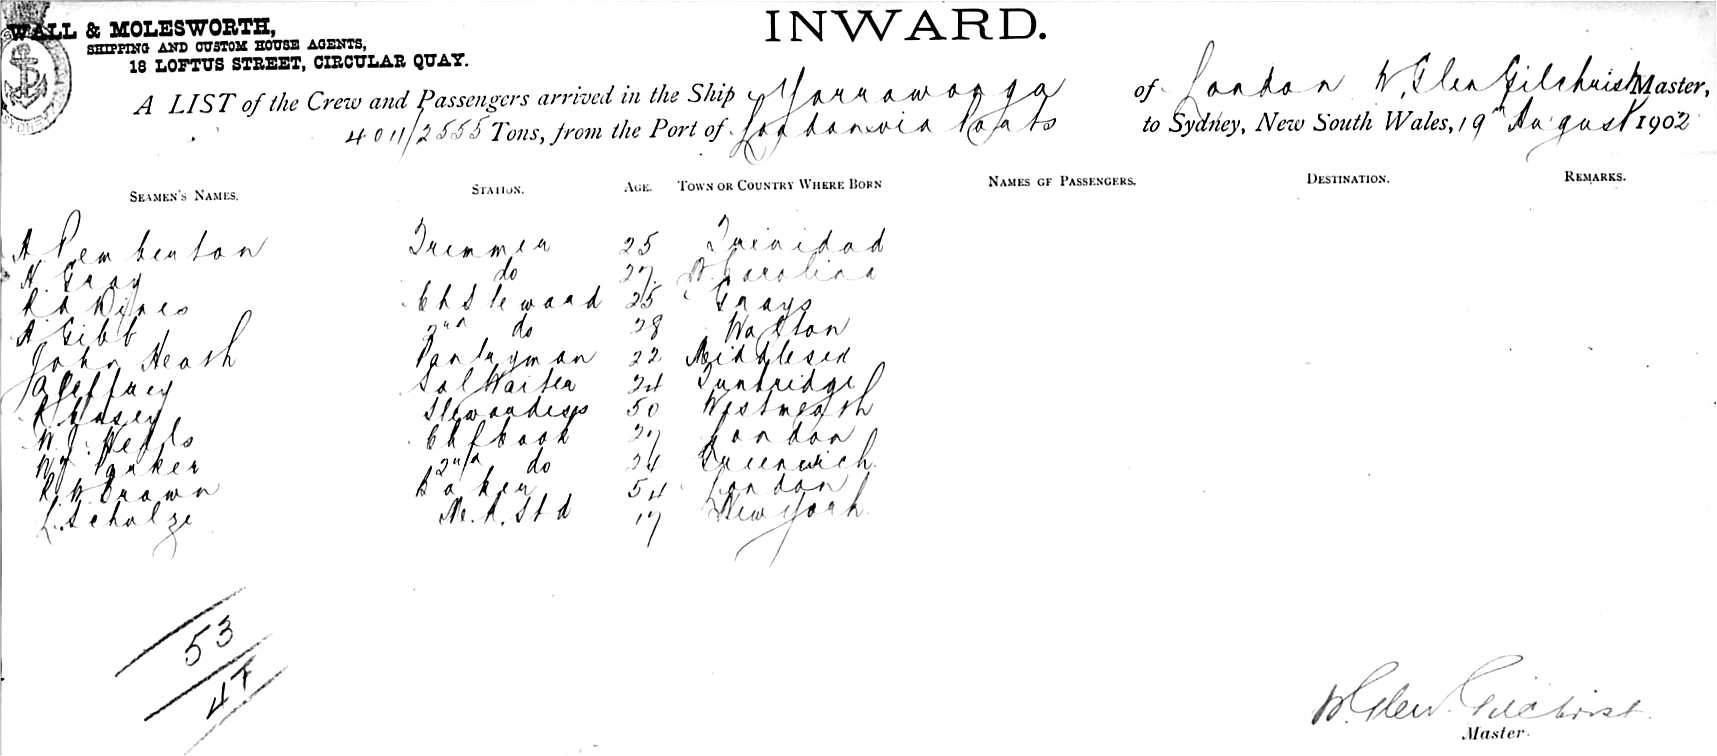 INWARD.
WALL & MOLESWORTH,
SHIPPING AND CUSTOM HOUSE AGENTS,
18 LOFTUS STREET, CIRCULAR QUAY.
A LIST of the Crew and Passengers arrived in the Ship Yarrawonga of London W. Glen Gilchrist Master,
4011/2555 Tons, from the Port of London via Ports to Sydney, New South Wales, 19th August 1902
SEAMEN'S NAMES. STATION. AGE. TOWN OR COUNTRY WHERE BORN NAMES OF PASSENGERS. DESTINATION. REMARKS.
A Pemberton Trimmer 25 Trinidad
H. Gray do 27. N. Carolina
Ch Steward 25 Grays
A Gibb 2nd do 28 Walton
John Heash Pantryman 22 Middlesex
Jeffrey Sal Waiter 24 Tunbridge
Stewardess 50 Westmeath
W. J. Chf Cook 27 London
W J Parker 2nd do 24 Greenwich
R W Brown Baker 54 London
L. Schulze M. R. Std 17 New York
53
47
W. Glen Gilchrist
Master.